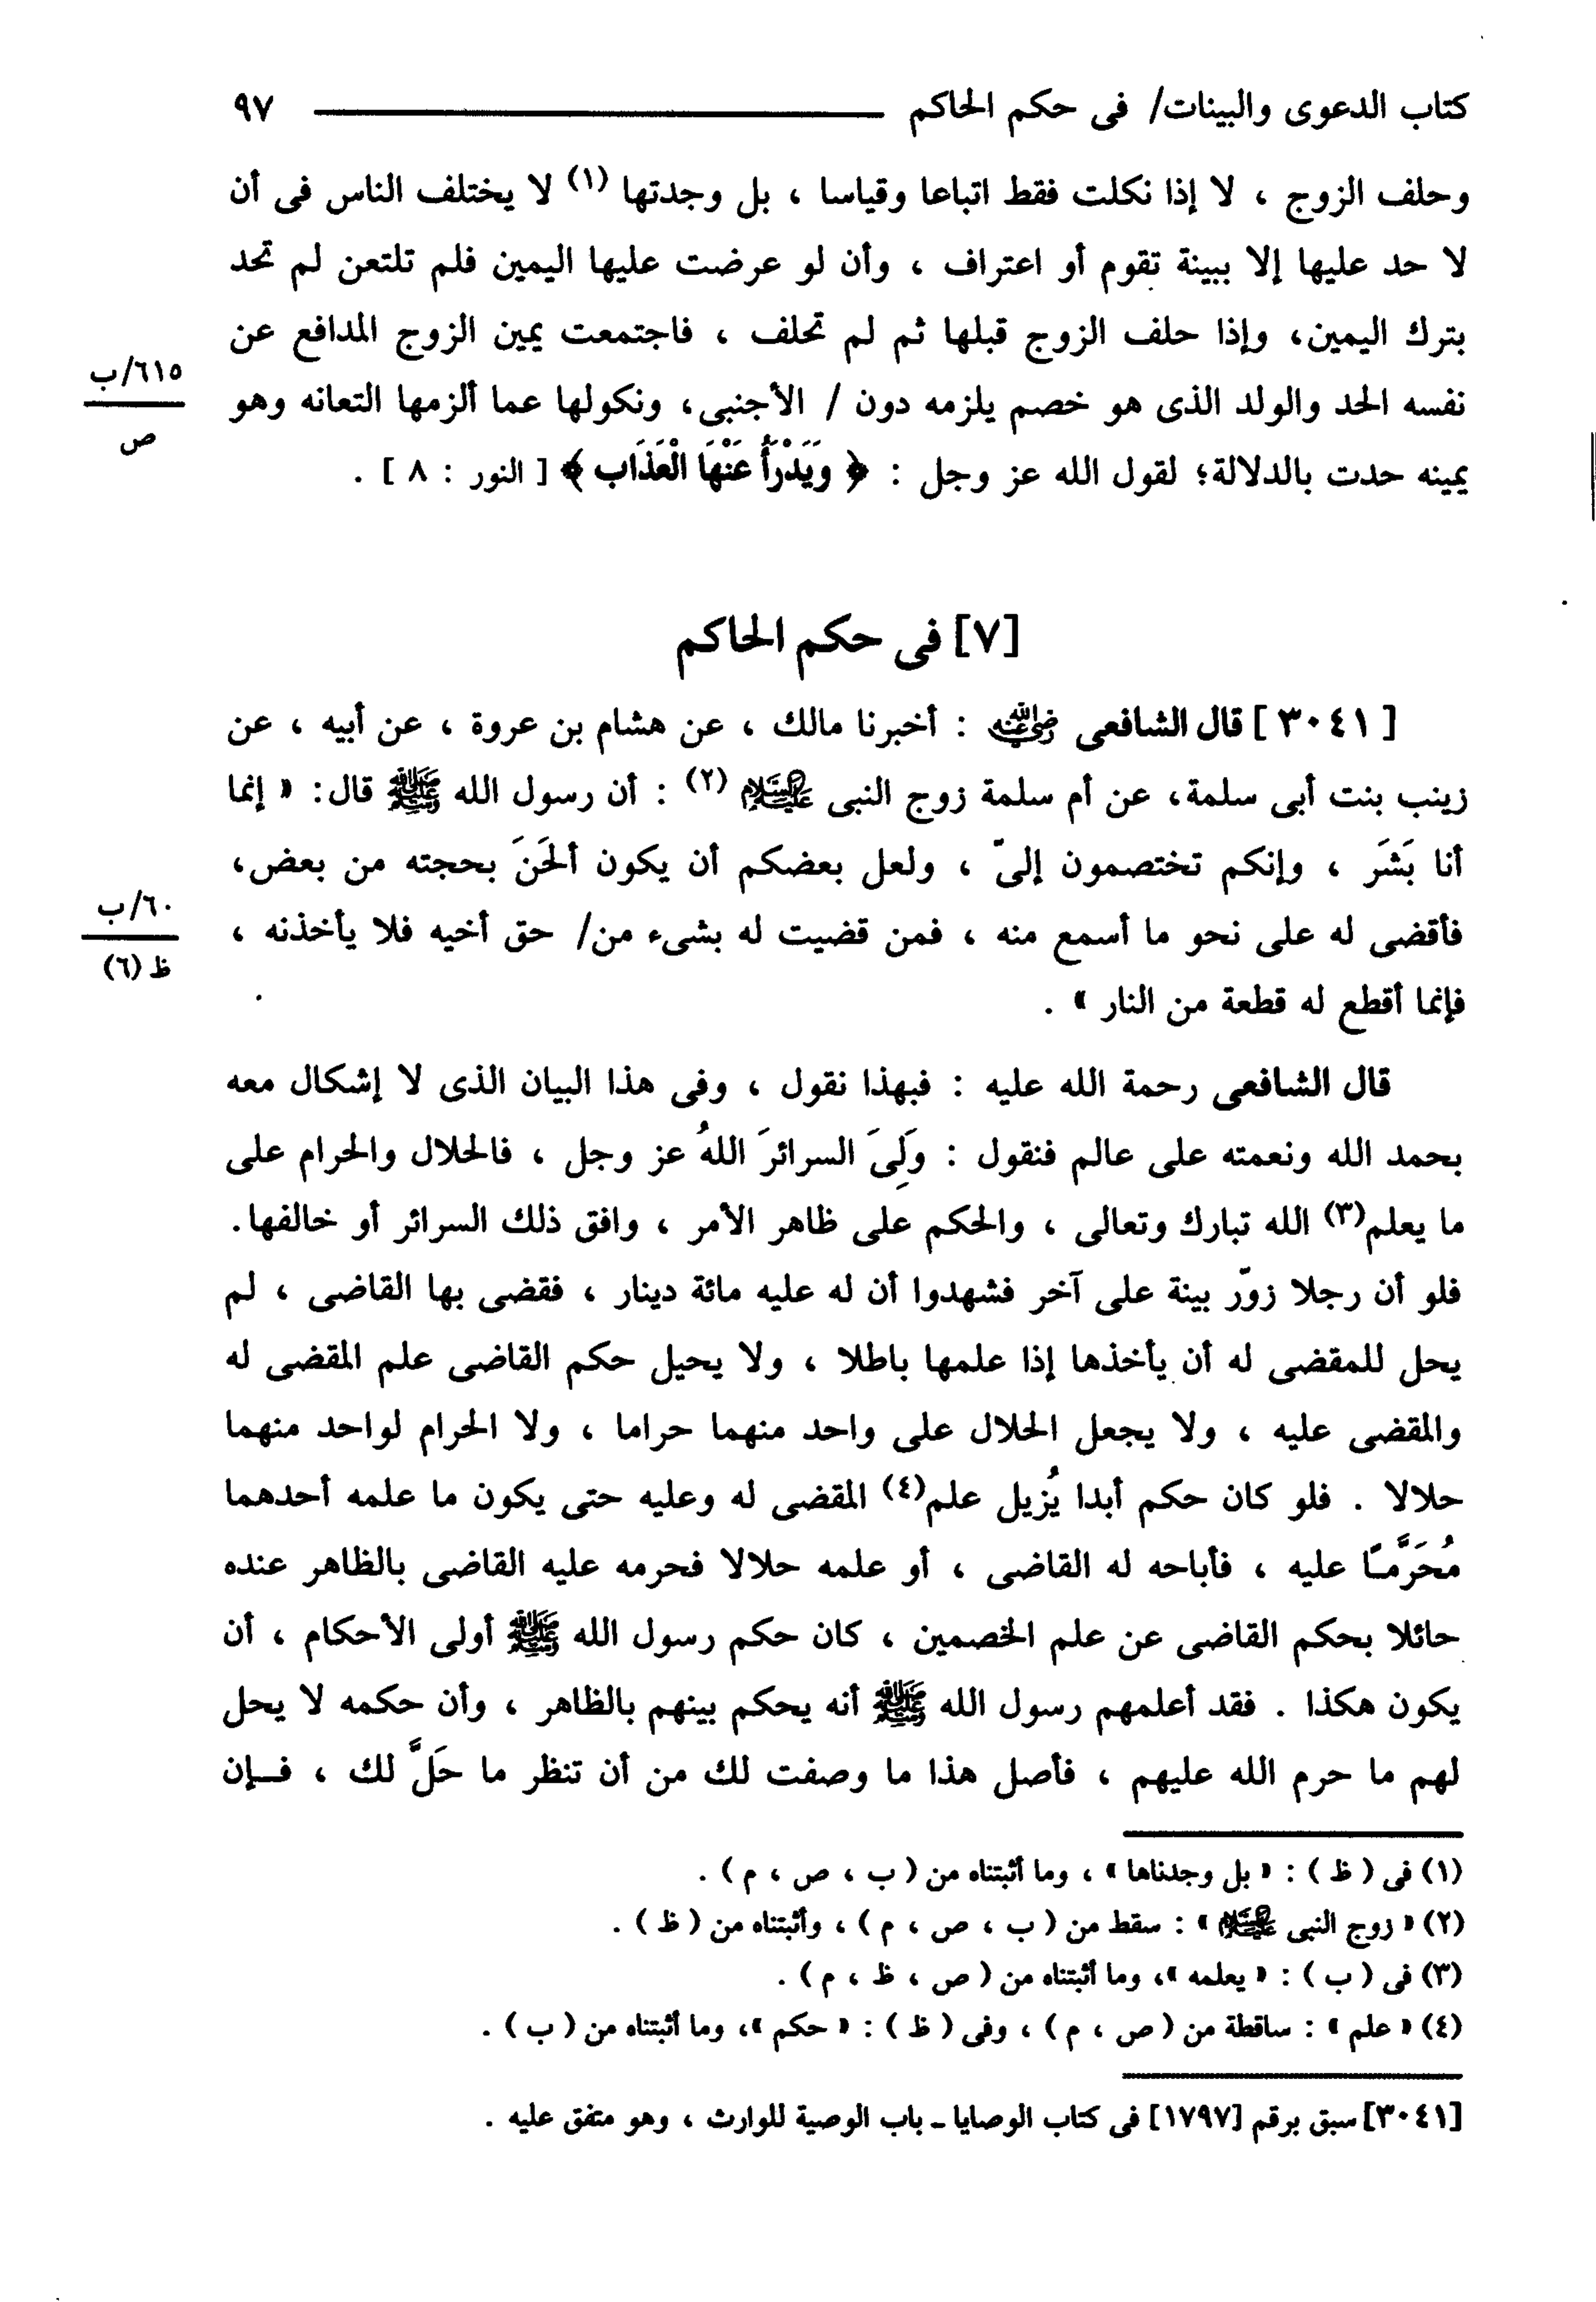 كتاب الدعوى والبينات/ فى حكم الحاكم ٩٧
وحلف الزوج ، لا إذا نكلت فقط اتباعا وقياسا ، بل وجدتها (١) لا يختلف الناس فى أن
لا حد عليها إلا ببينة تقوم أو اعتراف ، وأن لو عرضت عليها اليمين فلم تلتعن لم تحد
بترك اليمين، وإذا حلف الزوج قبلها ثم لم تحلف ، فاجتمعت يمين الزوج المدافع عن
٦١٥/ب
ص
نفسه الحد والولد الذى هو خصم يلزمه دون / الأجنبى، ونكولها عما ألزمها التعانه وهو
يمينه حدت بالدلالة؛ لقول الله عز وجل : ﴿ وَيَدْرَأُ عَنْهَا الْعَذَابَ ﴾ [ النور : ٨ ] .
[٧] فى حكم الحاكم
[ ٣٠٤١ ] قال الشافعى رضي الله عنه : أخبرنا مالك ، عن هشام بن عروة ، عن أبيه ، عن
زينب بنت أبى سلمة، عن أم سلمة زوج النبى عليه السلام (٢) : أن رسول الله ﷺ قال: « إنما
أنا بَشَر ، وإنكم تختصمون إلىّ ، ولعل بعضكم أن يكون ألحَنَ بحجته من بعض،
٦٠/ب
ظ (٦)
فأقضى له على نحو ما أسمع منه ، فمن قضيت له بشىء من/ حق أخيه فلا يأخذنه ،
فإنما أقطع له قطعة من النار » .
قال الشافعى رحمة الله عليه : فبهذا نقول ، وفى هذا البيان الذى لا إشكال معه
بحمد الله ونعمته على عالم فنقول : وَلِىَ السرائرَ اللهُ عز وجل ، فالحلال والحرام على
ما يعلم(٣) الله تبارك وتعالى ، والحكم على ظاهر الأمر ، وافق ذلك السرائر أو خالفها.
فلو أن رجلا زوّر بينة على آخر فشهدوا أن له عليه مائة دينار ، فقضى بها القاضى ، لم
يحل للمقضى له أن يأخذها إذا علمها باطلا ، ولا يحيل حكم القاضى علم المقضى له
والمقضى عليه ، ولا يجعل الحلال على واحد منهما حراما ، ولا الحرام لواحد منهما
حلالا . فلو كان حكم أبدا يُزيل علم(٤) المقضى له وعليه حتى يكون ما علمه أحدهما
مُحَرَّمًا عليه ، فأباحه له القاضى ، أو علمه حلالا فحرمه عليه القاضى بالظاهر عنده
حائلا بحكم القاضى عن علم الخصمين ، كان حكم رسول الله ﷺ أولى الأحكام ، أن
يكون هكذا . فقد أعلمهم رسول الله ﷺ أنه يحكم بينهم بالظاهر ، وأن حكمه لا يحل
لهم ما حرم الله عليهم ، فأصل هذا ما وصفت لك من أن تنظر ما حَلَّ لك ، فــإن
(١) فى ( ظ ) : « بل وجدناها » ، وما أثبتناه من ( ب ، ص ، م ) .
(٢) « زوج النبى عليه السلام » : سقط من ( ب ، ص ، م ) ، وأثبتناه من ( ظ ) .
(٣) فى ( ب ) : « يعلمه »، وما أثبتناه من ( ص ، ظ ، م ) .
(٤) « علم » : ساقطة من ( ص ، م ) ، وفى ( ظ ) : « حكم »، وما أثبتناه من ( ب ) .
[٣٠٤١] سبق برقم [١٧٩٧] فى كتاب الوصايا ـ باب الوصية للوارث ، وهو متفق عليه .